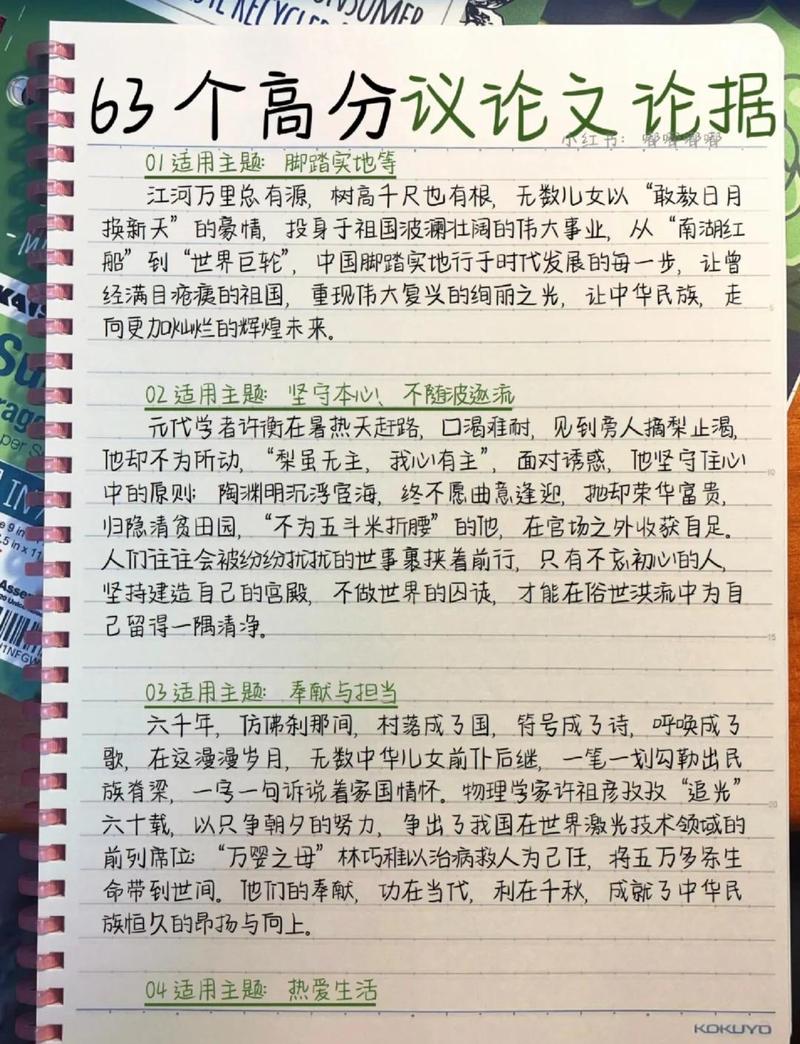 CONSUMER
RECYCLED
63个高分议论文论据
小红书：嘟嘟嘟嘟
01 适用主题：脚踏实地等
江河万里总有源，树高千尺也有根，无数儿女以“敢教日月
换新天”的豪情，投身于祖国波澜壮阔的伟大事业，从“南湖红
船”到“世界巨轮”，中国脚踏实地行于时代发展的每一步，让曾
经满目疮痍的祖国，重现伟大复兴的绚丽之光，让中华民族，走
向更加灿烂的辉煌未来。
02 适用主题：坚守本心、不随波逐流
元代学者许衡在暑热天赶路，口渴难耐，见到旁人摘梨止渴，
他却不为所动，“梨虽无主，我心有主”，面对诱惑，他坚守住心
中的原则；陶渊明沉浮宦海，终不愿曲意逢迎，抛却荣华富贵，
归隐清贫田园，“不为五斗米折腰”的他，在官场之外收获自足。
人们往往会被纷纷扰扰的世事裹挟着前行，只有不忘初心的人，
坚持建造自己的宫殿，不做世界的囚徒，才能在俗世洪流中为自
己留得一隅清净。
03 适用主题：奉献与担当
六千年，仿佛刹那间，村落成了国，符号成了诗，呼唤成了
歌，在这漫漫岁月，无数中华儿女前仆后继，一笔一划勾勒出民
族脊梁，一字一句诉说着家国情怀。物理学家许祖彦孜孜“追光”
六十载，以只争朝夕的努力，争出了我国在世界激光技术领域的
前列席位；“万婴之母”林巧稚以治病救人为己任，将五万多条生
命带到世间。他们的奉献，功在当代，利在千秋，成就了中华民
族恒久的昂扬与向上。
04 适用主题：热爱生活
KOKUYO